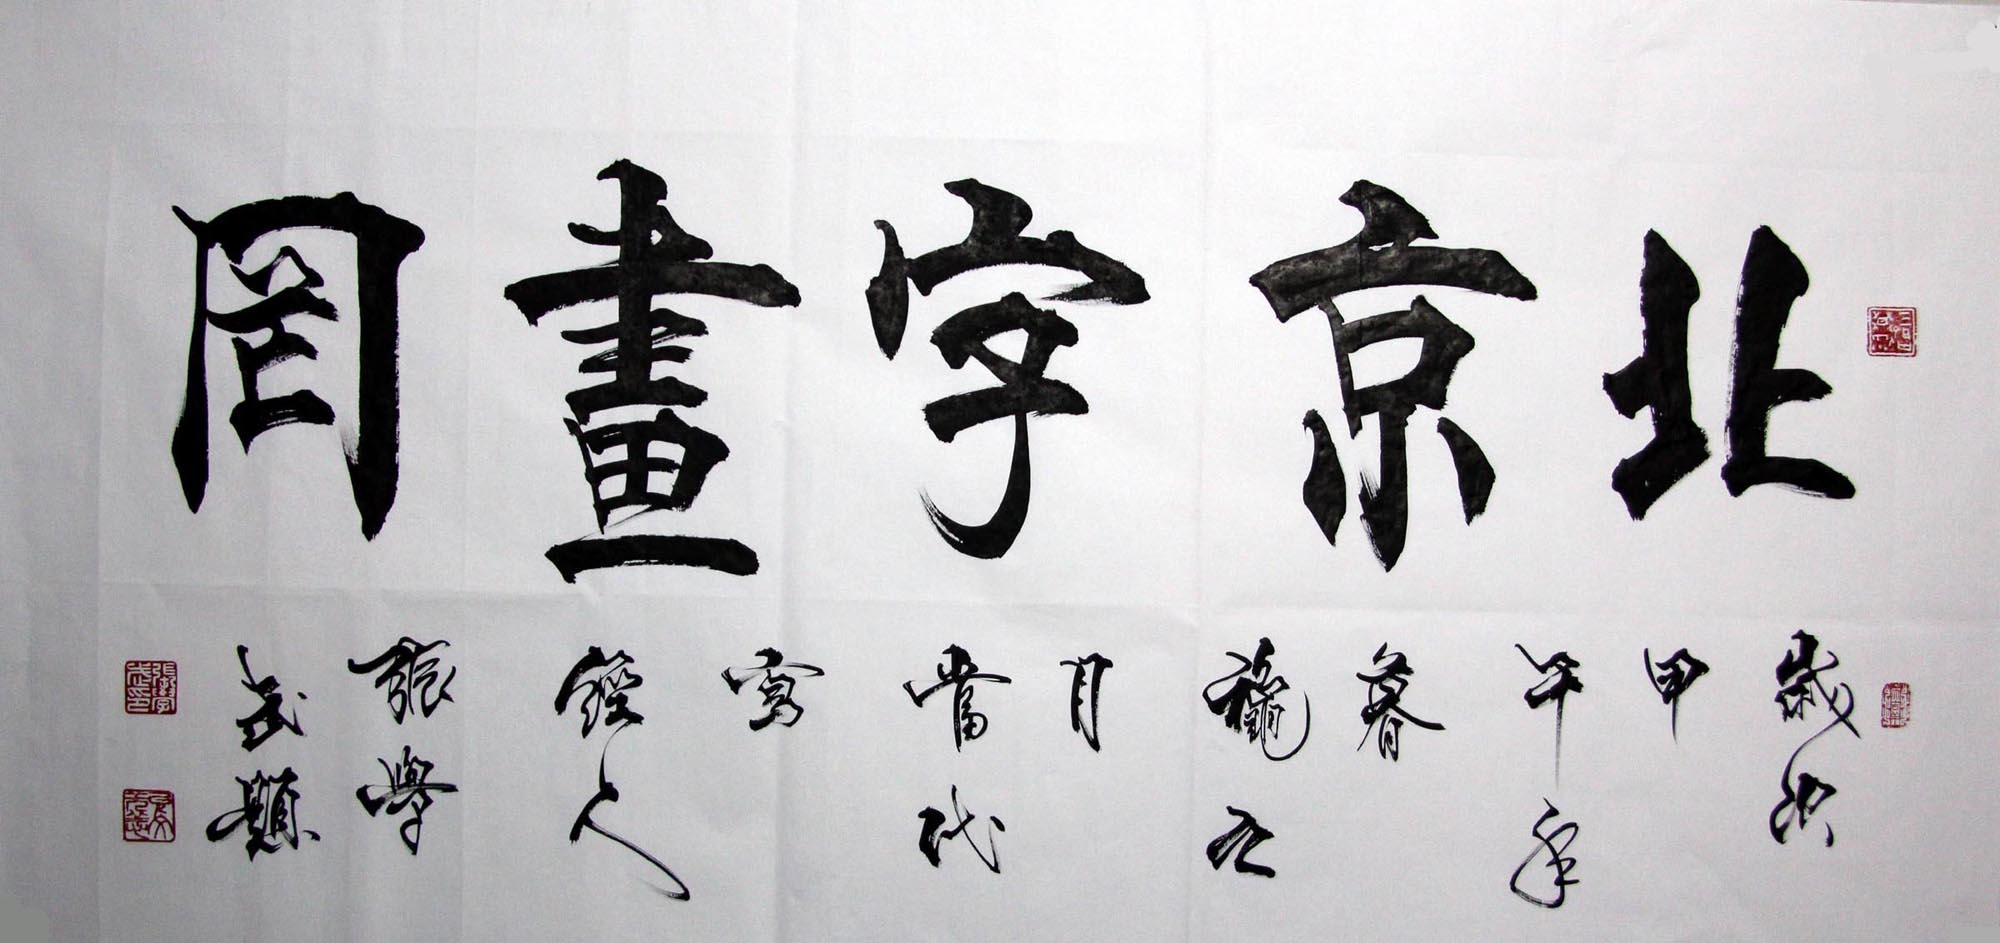 北京字畫罔
歲次
甲
午年
暮
龝之
月
當代
寫
經人
張學
武題